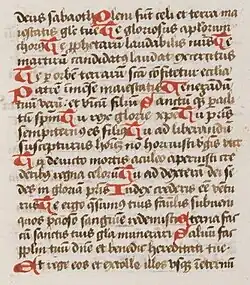 deus sabaoth Pleni sunt celi et terra ma
iestatis glie tue Te gloriosus aplorum
chorus Te prophetarum laudabilis nus Te
martirum candidatus laudat exercitus
Te per orbem terrarum sca cofitetur ecclia
Patre imese maiestatis Venerandu
tuum verum et vnicum filium Sanctum quoq parali
tu spiritum Tu rex glorie xpe Tu pris
sempiternus es filius Tu ad liberandu
suscepturus hoiem no horruisti vgis vteru
Tu deuicto mortis aculeo aperuisti cre
detibus regna celorum Tu ad dexteram dei se
des in gloria pris Iudex crederis ee ventu
rus Te ergo qsumus tuis famulis subueni
quos precioso sanguine redemisti Eterna fac
cu sanctis tuis gla munerari Saluum fac
pplm tuum dne et benedic hereditati tue
Et rege eos et extolle illos vsq in eternum